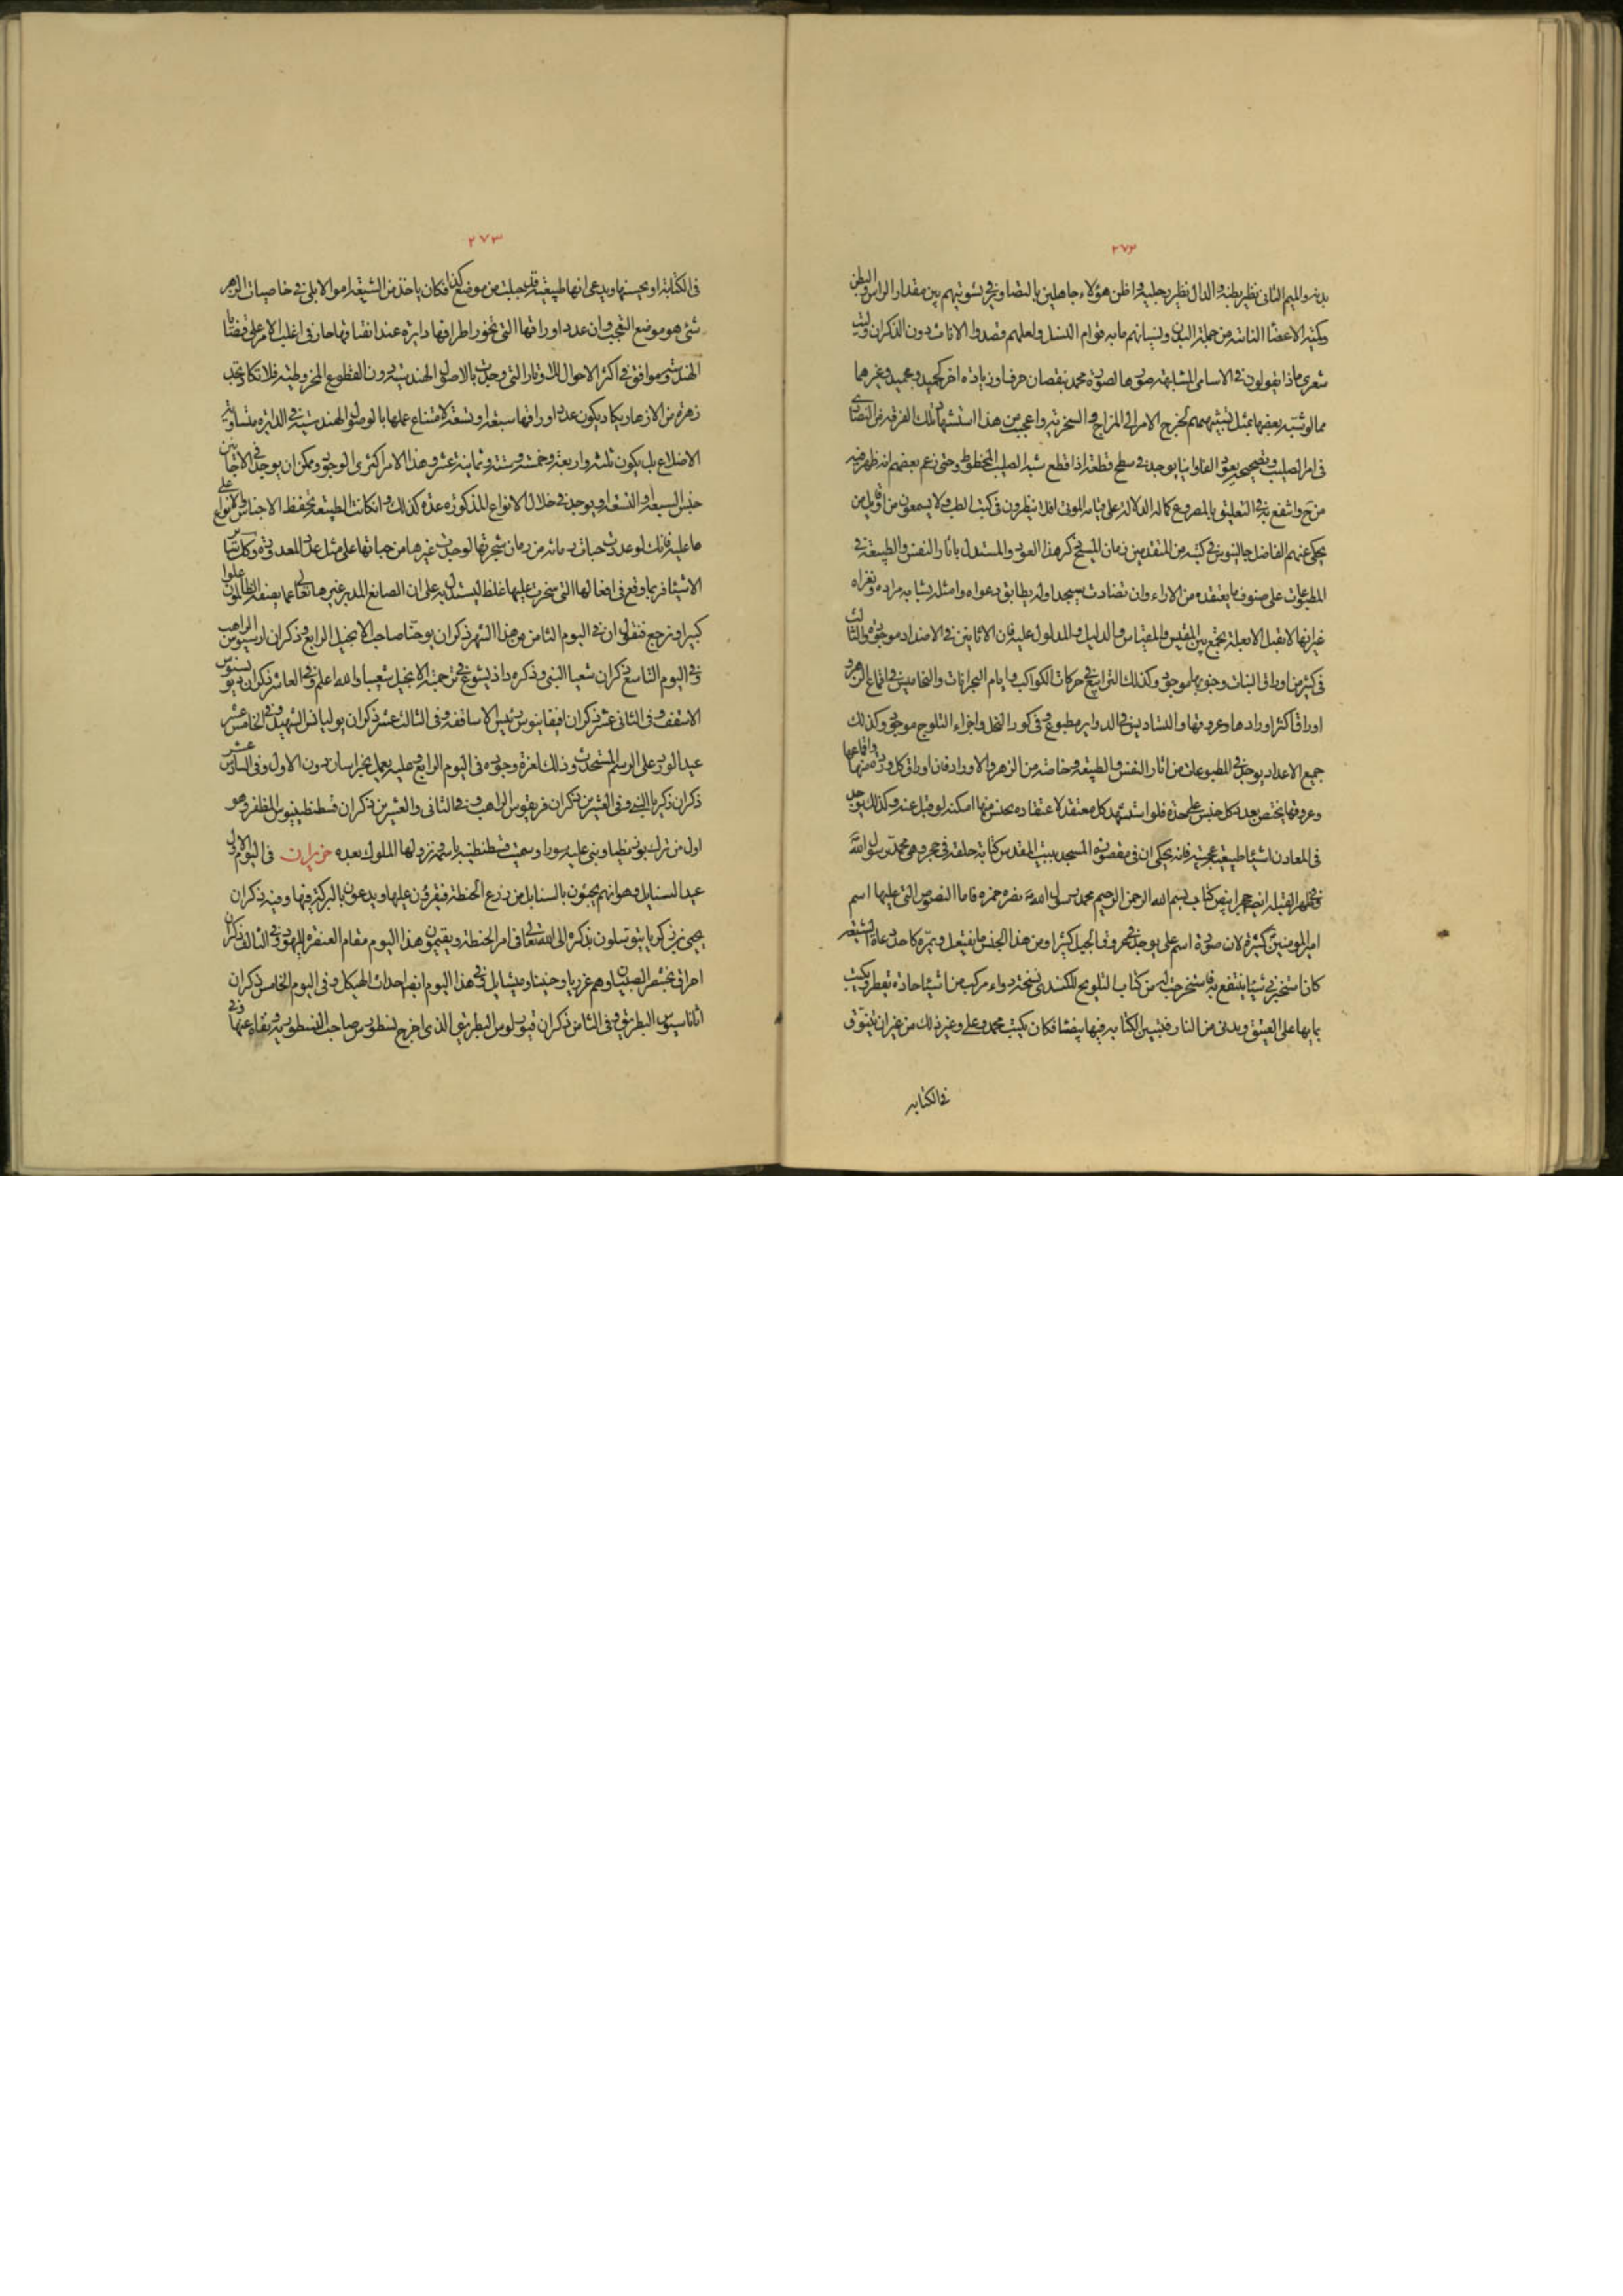 ٢٧٢
يديه والميم الثاني نظير بطنه والدال نظير رجليه واظن هؤلاء جاهلين بالتصاوير في تسويتهم بين مقدار الراس والبطن
وكمية الاعضا الناتئة من جملة البدن ونسيانهم ما به قوام النسل ولعلهم قصدوا الاناث دون الذكران وليت
شعري ماذا يقولون في الاسامي المشابهة صورها لصورة محمد بنقصان حرف او زيادة اخر كحميد ومجيد وغيرهما
مما لو شبه بعضها بمثل تشبيههم لخرج الامر الى المزاح والسخرية واعجب من هذا استشهاد تلك الفرقة من النصارى
في امر الصليب وتصحيحه بعود الفاوانيا يوجد في سطح قطعه اذا قطع شبه الصليب المخطوط وحتى زعم بعضهم انه ظهر فيه
من ح وانتفع به في التعليق بالمصروع كانه الدلالة على قيامة الموتى افلا ينظرون في كتب الطب ولا يسمعون من اقاويل من
يحكي عنهم الفاضل جالينوس في كتبه من المتقدمين زمان المسيح ذكر هذا العود والمستدل باثار النفس والطبيعة في
المطبوعات على صنوف ما يعتقده من الاراء وان تضادت سيجد اوله يطابق دعواه وامثله يشابه مراده ومغزاه
غير انها لا تقبل الا بعلة تجمع بين المقيس والمقتاس والدليل والمدلول عليه فان الاثانين في الاضداد موجودة والثالث
في كثير من اوراق النبات وحبوبها موجود وكذلك الترابيع في حركات الكواكب وايام البحرانات والتخاميس في اقماع الزهر و
اوراق اكثر اورادها وعروقها والتساديس في الدواير مطبوع في كور النحل واجزاء الثلوج موجود وكذلك
جميع الاعداد يوجد في المطبوعات من اثار النفس والطبيعة وخاصة من الزهر والاوراد فان اوراق كل وردة منها واقماعها
وعروقها يختص بعدد كل جنس على حدة فلو استشهد كل معتقد لاعتقاده بجنس منها امكنه لو قبل عنه وكذلك يوجد
في المعادن اشيئا طبيعية عجيبة فانه يحكى ان في مقصورة المسجد ببيت المقدس كتابة حلقة في حجر وهي محمد رسول الله
وفي ظهر القبلة ايضا حجر ابيض كتاب بسم الله الرحمن الرحيم محمد رسول الله نصره حمزة فاما الفصوص التي عليها اسم
امير المومنين كثيرة لان صورة اسم علي يوجد في عروق الجبل كثيرا ومن هذا الجنس ما يفتعل ويموه كاحد دعاة الشيعة
كان استخبرني شيئا ينتفع به فاستخرجت له من كتاب التلويح للكندي نسخة دواء مركب من اشيئا حادة يقطر ويكتب
بمايها على العقيق ويدنى من النار فتبين الكتابة فيها بيضا فكان يكتب محمد وعلي وغير ذلك من غير ان يتنوق
في الكتابه
٢٧٣
في الكتابة او يحسنها ويدعي انها طبيعية قد جبلت من موضع كذا فكان ياخذ من الشيعة اموالا بلى في خاصيات الزهر
شئ هو موضع التعجب وان عدد اوراقها التي تحوز اطرافها دايرة عند انفتاقها جار في اغلب الامر على قضايا
الهندسة وموافق في اكثر الاحوال للاوتار التي وجدت بالاصول الهندسية دون القطوع المخروطية فلا تكاد تجد
زهرة من الازهار يكاد يكون عدد اوراقها سبعة او تسعة لامتناع عملها بالاصول الهندسية في الدايرة متساوية
الاضلاع بل يكون ثلثة واربعة وخمسة وستة وثمانية عشر وهذا الامر اكثري الوجود وممكن ان يوجد في الاجناس
جنس السبعة او التسعة او يوجد في خلال الانواع المذكورة عدة كذلك وان كانت الطبيعة تحفظ الاجناس والانواع على
ما عليه فانك لو عددت حبات رمانة من رمان شجرتها لوجدت غيرها من حباتها على مثل عدد المعدودة وكذلك ساير
الاشيئا فربما وقع في افعالها التي سخرت عليها غلط ليستدل به على ان الصانع المدبر غيرها تعالى عما يصفه الظالمون علوا
كبيرا ونرجع فنقول ان في اليوم الثامن من هذا الشهر ذكران يوحنا صاحب الانجيل الرابع وذكران ارسنيوس الراهب
وفي اليوم التاسع ذكران شعيا النبي وذكره داذيشوع في ترجمة الانجيل شعيبا والله اعلم وفي العاشر ذكران ديونيسيوس
الاسقف وفي الثاني عشر ذكران افيفانيوس رئيس الاساقفة وفي الثالث عشر ذكران يوليانس الشهيد وفي الخامس عشر
عيد الورد على الرسم المستحدث وذلك لعزة وجوده في اليوم الرابع وعليه يعمل بخراسان دون الاول وفي السادس عشر
ذكران زكريا النبي وفي العشرين ذكران قرياقوس الراهب وفي الثاني والعشرين ذكران قسطنطينوس المظفر وهو
اول من ترك بوزنطيا وبنى عليه سورا وسميت قسطنطينة باسمه ونزولها الملوك بعده حزيران في اليوم الاول
عيد السنابل وهو انهم يجيئون بالسنابل من زرع الحنطة فيقرؤن عليها ويدعون بالبركة فيها وفيه ذكران
يحيى بن زكريا يتوسلون بذكره الى الله تعالى في امر الحنطة ويقيمون هذا اليوم مقام العنصرة لليهود وفي الثالث ذكران
احراق بختنصر الصبيان وهم عزريا وحنينا وميشايل وفي هذا اليوم ايضا احداث الهيكل وفي اليوم الخامس ذكران
اثاناسيوس البطريق وفي الثامن ذكران قورلوس البطريق الذي اخرج نسطورس صاحب النسطورية ونفاه عنها وفي